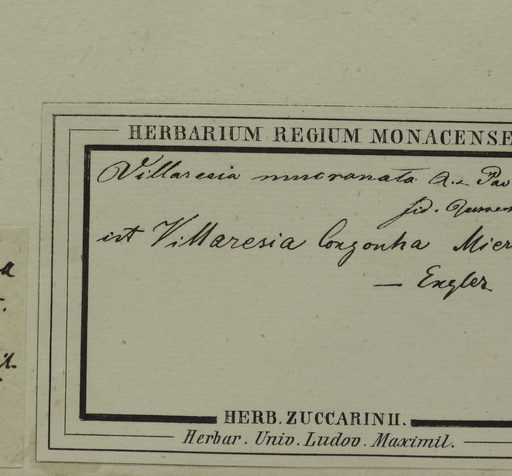 HERBARIUM REGIUM MONACENSE
Villaresia mucronata R. & Pav
fid.
ist Villaresia Congonha Miers
— Engler
HERB. ZUCCARINII.
Herbar. Univ. Ludov. Maximil.